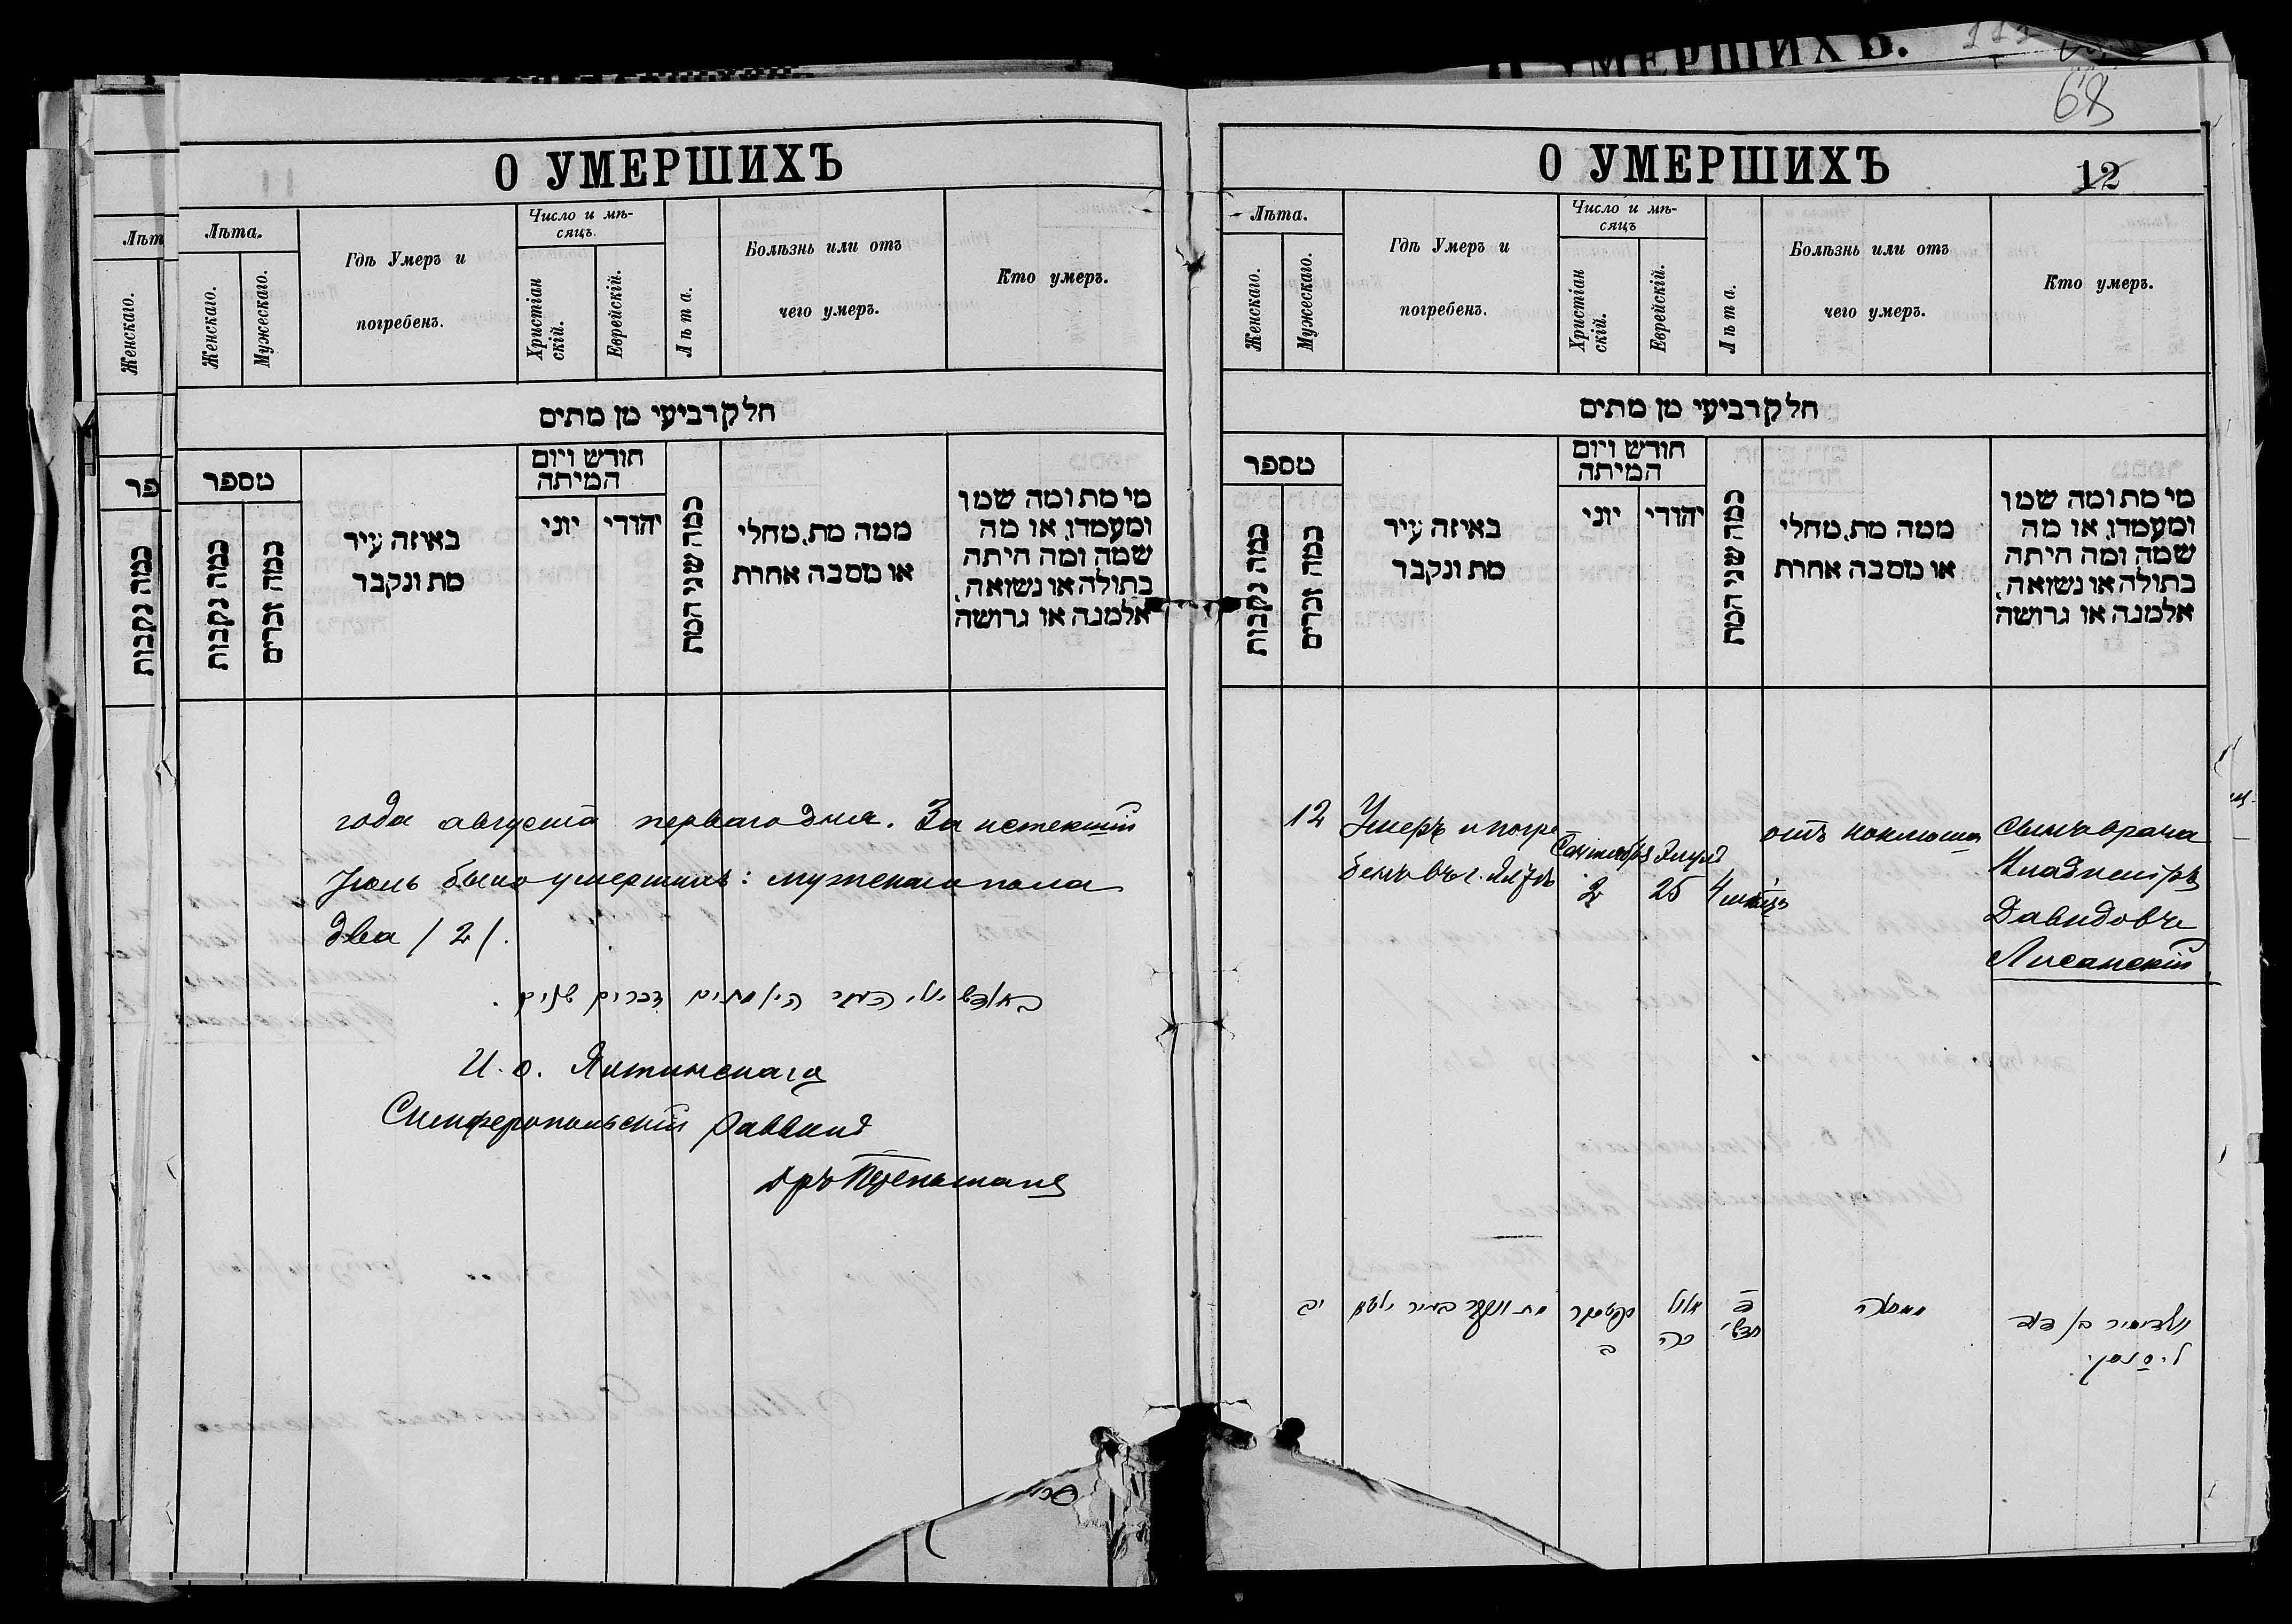 О УМЕРШИХЪ.
68
О УМЕРШИХЪ
Лѣта.
Женскаго.
Мужескаго.
Гдѣ Умеръ и
погребенъ.
Число и мѣ-
сяцъ.
Христіан
скій.
Еврейскій.
Лѣта.
Болѣзнь или отъ
чего умеръ.
Кто умеръ.
חלק רביעי מן מתים
מספר
כמה נקבות
כמה זכרים
באיזה עיר
מת ונקבר
חודש ויום
המיתה
יוני
יהודי
כמה שני המת
ממה מת, מחלי
או מסבה אחרת
מי מת ומה שמו
ומעמדו, או מה
שמה ומה היתה
בתולה או נשואה,
אלמנה או גרושה
года августа перваго дня. За истекшій
Іюль было умершихъ: мужскаго пола
два /2/.
И. о. Ялтинскаго
Симферопольскій Раввинъ
О УМЕРШИХЪ
12
Лѣта.
Женскаго.
Мужескаго.
Гдѣ Умеръ и
погребенъ.
Число и мѣ-
сяцъ
Христіан
скій.
Еврейскій.
Лѣта.
Болѣзнь или отъ
чего умеръ.
Кто умеръ.
חלק רביעי מן מתים
מספר
כמה נקבות
כמה זכרים
באיזה עיר
מת ונקבר
חודש ויום
המיתה
יוני
יהודי
כמה שני המת
ממה מת, מחלי
או מסבה אחרת
מי מת ומה שמו
ומעמדו, או מה
שמה ומה היתה
בתולה או נשואה,
אלמנה או גרושה
12
Умеръ и погре
бенъ въ г. Ялтѣ
Сентября
2
Элулъ
25
4 мѣсяц
отъ коклюша
сынъ врача
Владиміръ
Давидовъ
Лисанскій
יב
מת ונקבר בעיר יאלטא
ב
אלול
כה
ד
חדשי